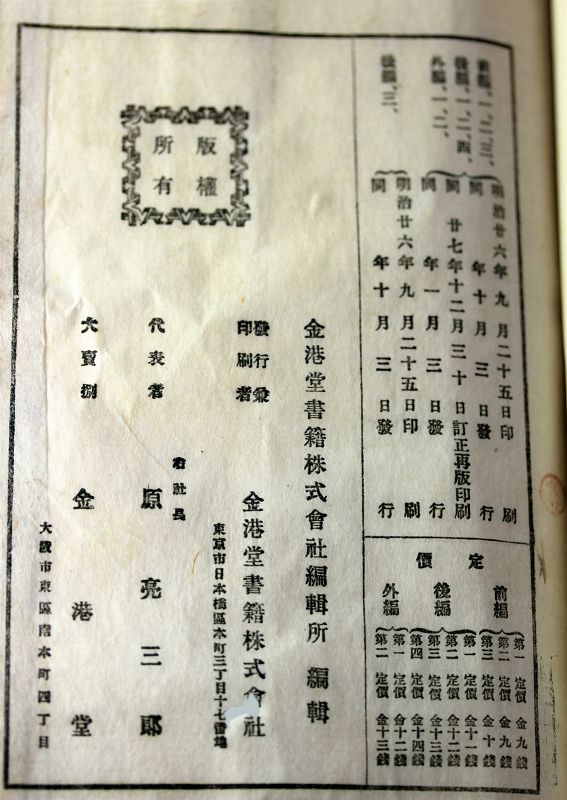 前編、一、二、三、
後編、一、二、四、
外編、一、二、
後編、三、
明治廿六年九月二十五日印刷
同年十月三日發行
同廿七年十二月三十日訂正再版印刷
同年一月三日發行
明治廿六年九月二十五日印刷
同年十月三日發行
定價
前編
第一 定價 金九錢
第二 定價 金九錢
第三 定價 金十錢
後編
第一 定價 金十一錢
第二 定價 金十二錢
第三 定價 金十三錢
第四 定價 金十四錢
外編
第一 定價 金十二錢
第二 定價 金十三錢
版權
所有
金港堂書籍株式會社編輯所 編輯
發行兼
印刷者
金港堂書籍株式會社
東京市日本橋區本町三丁目十七番地
右社長
代表者 原亮三郎
大賣捌 金港堂
大阪市東區南本町四丁目